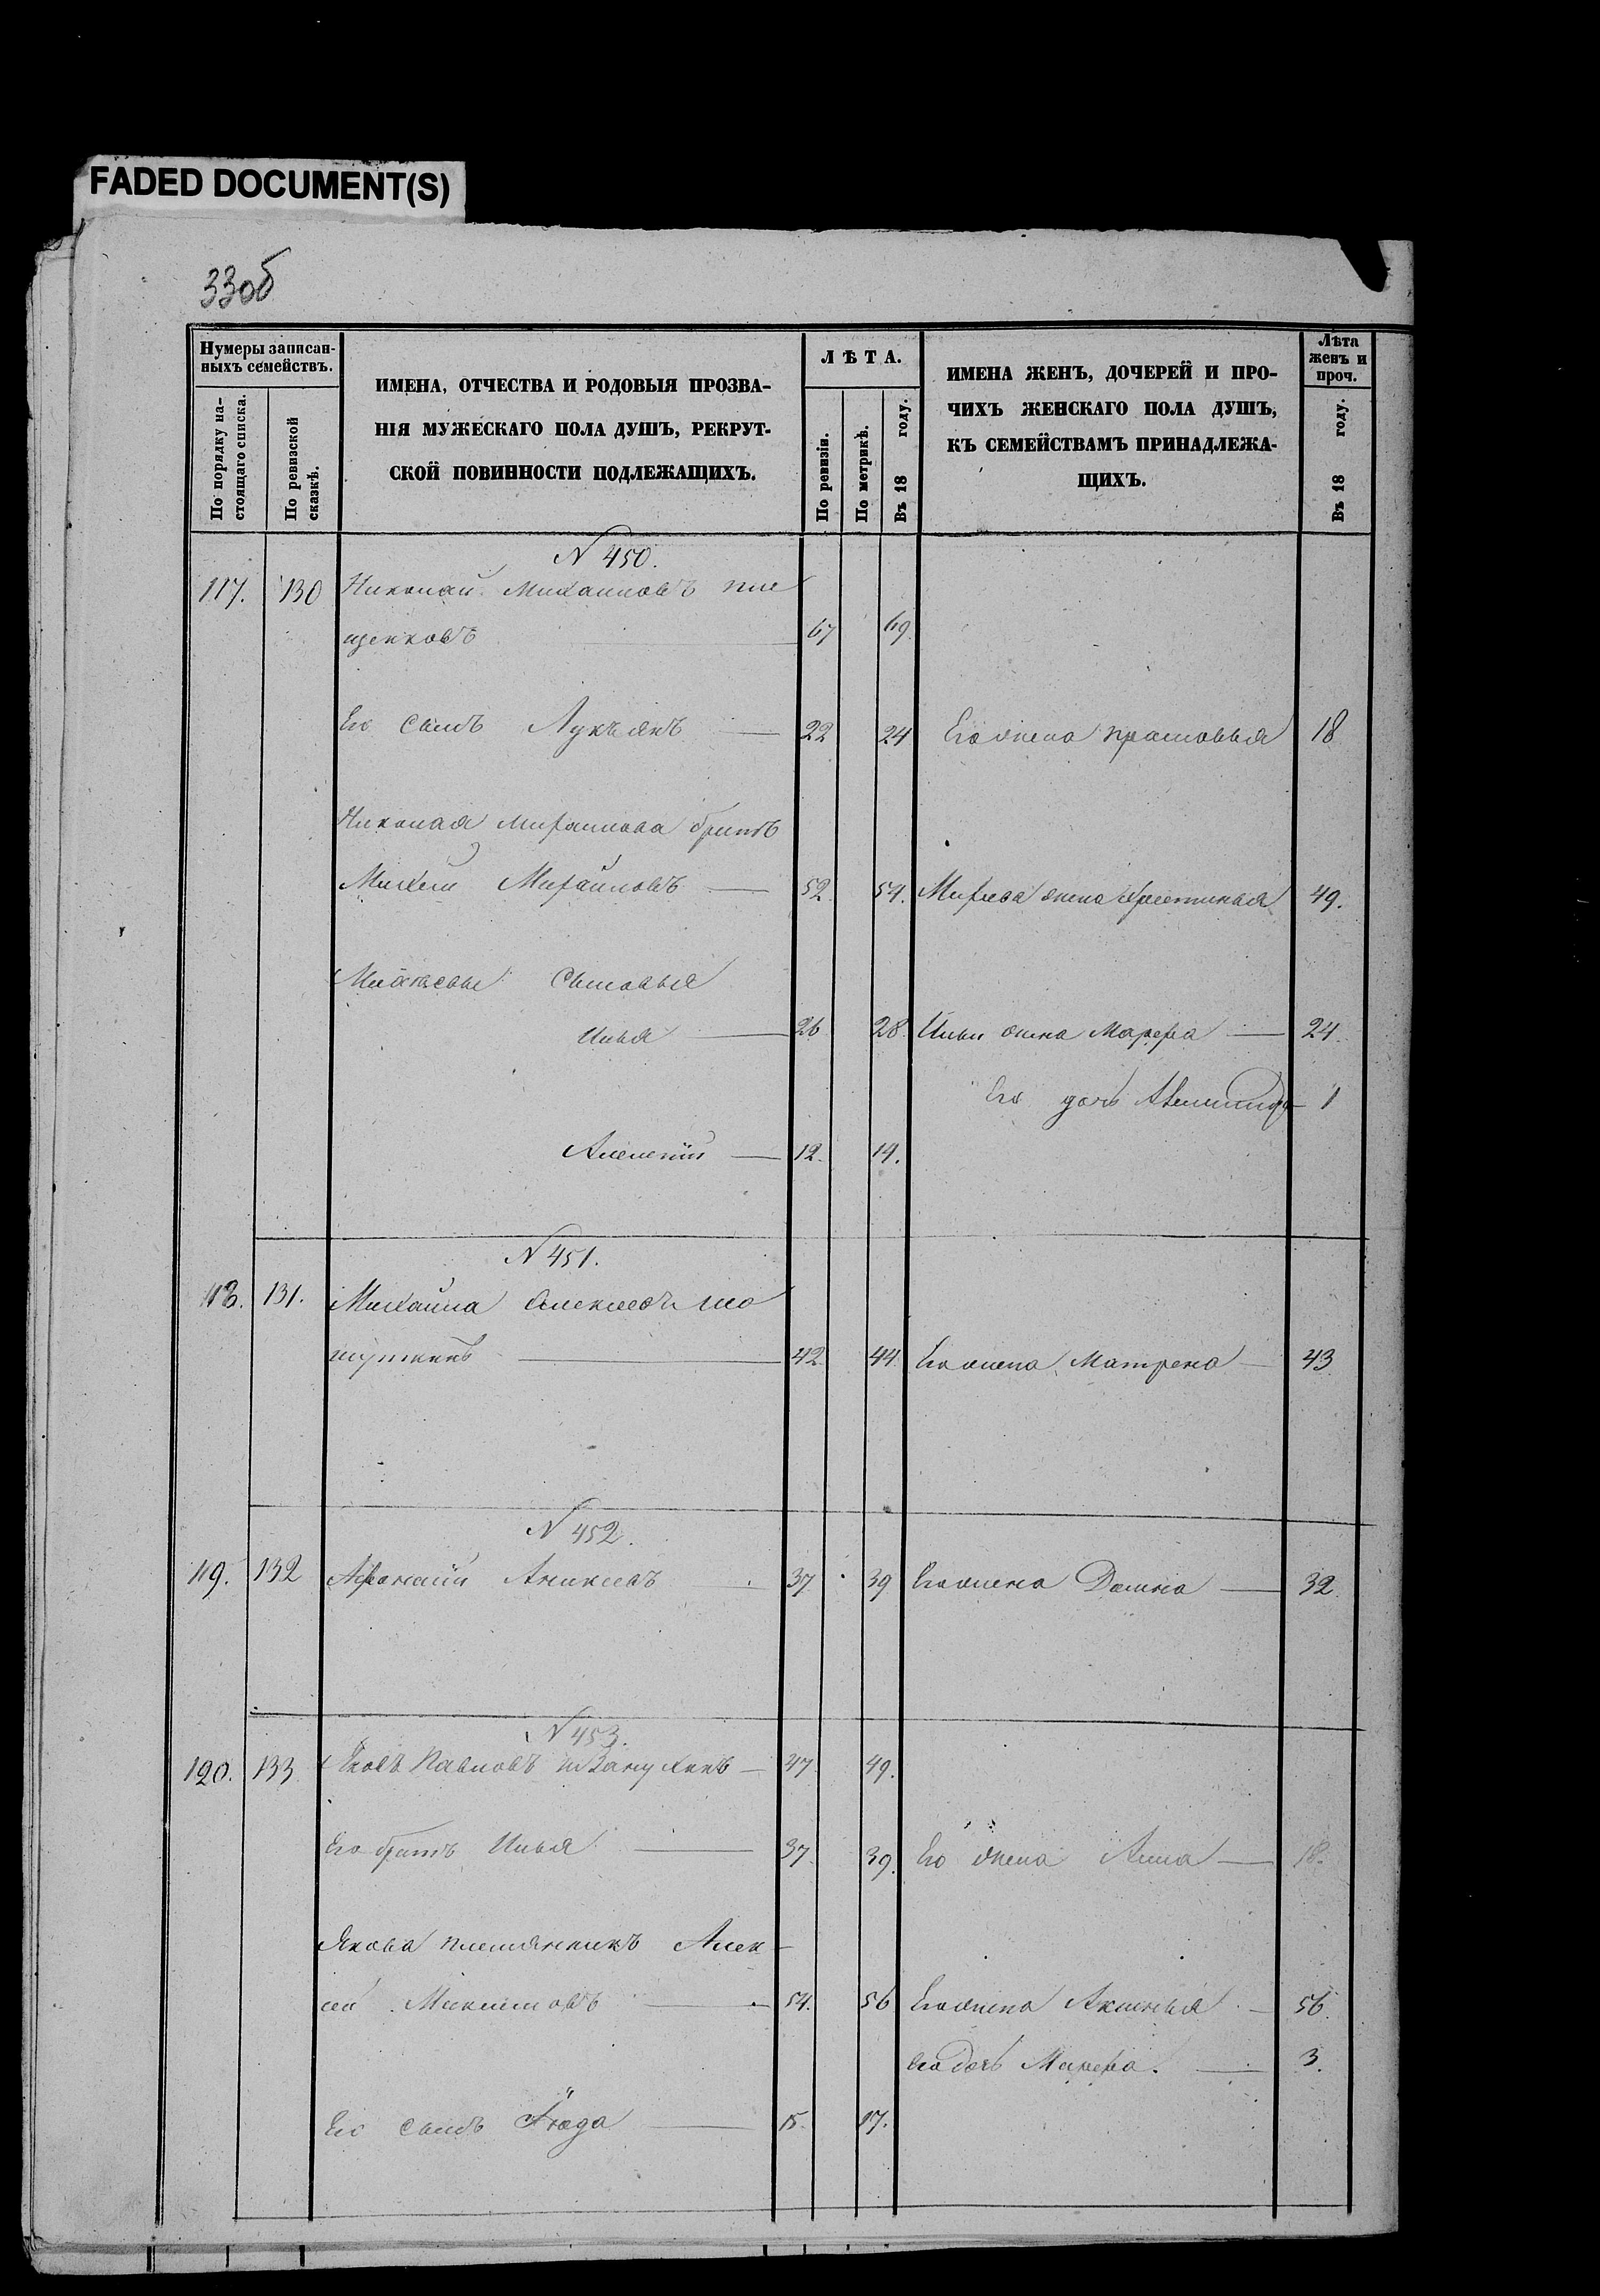 FADED DOCUMENT(S)
33об
Нумеры записан-
ныхъ семействъ.
По порядку на-
стоящаго списка.
По ревизской
сказкѣ.
ИМЕНА, ОТЧЕСТВА И РОДОВЫЯ ПРОЗВА-
НІЯ МУЖЕСКАГО ПОЛА ДУШЪ, РЕКРУТ-
СКОЙ ПОВИННОСТИ ПОДЛЕЖАЩИХЪ.
ЛѢТА.
По ревизіи.
По метрикѣ.
Въ 18 году.
ИМЕНА ЖЕНЪ, ДОЧЕРЕЙ И ПРО-
ЧИХЪ ЖЕНСКАГО ПОЛА ДУШЪ,
КЪ СЕМЕЙСТВАМЪ ПРИНАДЛЕЖА-
ЩИХЪ.
Лѣта
женъ и
проч.
Въ 18 году.
N 450.
117. 130 Николай Михаиловъ
щенковъ 67 69.
Его сынъ Лукьянъ — 22 24 Его жена прасковья 18
Николая михаилова братъ
Михей Михайловъ — 52. 54. Михѣева жена Христинья 49.
Михѣевы Сыновья
Илья — 26 28. Ильи жена Марфа — 24.
Его дочь — 1
Алексѣй — 12. 14.
N 451.
118. 131. Михайла Алексѣевъ
42. 44. Его жена Матрена — 43
N 452.
119. 132 Афонасій Аникѣевъ 37 39 Его жена Домна — 32.
N 453.
120. 133 Яковъ Павловъ — 47. 49.
Его братъ Илья — 37. 39. Его жена Анна — 18.
Якова племянникъ Алек-
сѣй Максимовъ — 54. 56 Его жена Аксинья — 56.
Его дочь Марфа. — 3.
Его сынъ — 15. 17.